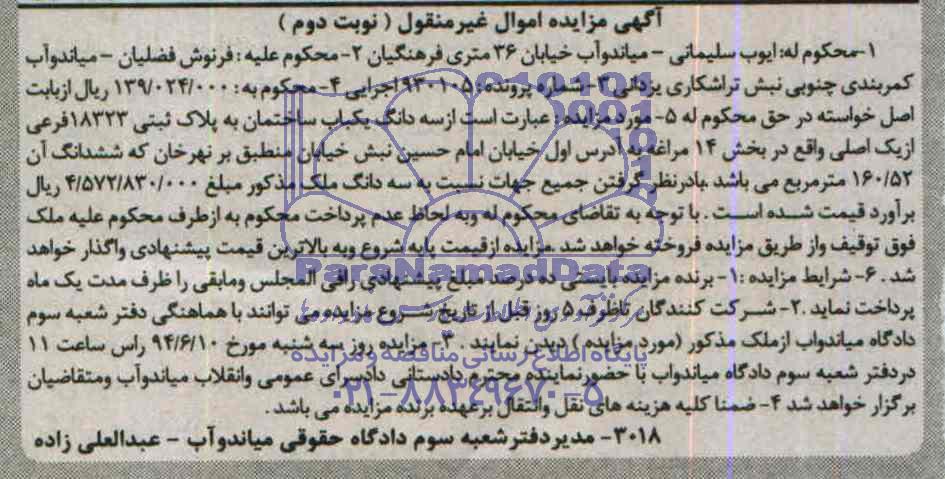 آگهی مزایده اموال غیرمنقول ( نوبت دوم )
۱-محکوم له: ایوب سلیمانی – میاندوآب خیابان ۳۶ متری فرهنگیان ۲- محکوم علیه : فرنوش فضلیان – میاندوآب
کمربندی چنوبی نبش تراشکاری یزدانی ۳- شماره پرونده: ۹۳۰۱۰۵ اجرایی ۴- محکوم به: ۱۳۹/۰۲۴/۰۰۰ ریال ازبابت
اصل خواسته در حق محکوم له ۵- مورد مزایده : عبارت است ازسه دانگ یکباب ساختمان به پلاک ثبتی ۱۸۳۲۳فرعی
ازیک اصلی واقع در بخش ۱۴ مراغه به آدرس اول خیابان امام حسین نبش خیابان منطبق بر نهرخان که ششدانگ آن
۱۶۰/۵۲ مترمربع می باشد .بادرنظر گرفتن جمیع جهات نسبت به سه دانگ ملک مذکور مبلغ ۴/۵۷۲/۸۳۰/۰۰۰ ریال
برآورد قیمت شده است . با توجه به تقاضای محکوم له وبه لحاظ عدم پرداخت محکوم به ازطرف محکوم علیه ملک
فوق توقیف واز طریق مزایده فروخته خواهد شد .مزایده ازقیمت پایه شروع وبه بالاترین قیمت پیشنهادی واگذار خواهد
شد . ۶- شرایط مزایده :۱- برنده مزایده بایستی ده درصد مبلغ پیشنهادی رافی المجلس ومابقی را ظرف مدت یک ماه
پرداخت نماید .۲- شرکت کنندگان تاظرف ۵ روز قبل از تاریخ شروع مزایده می توانند با هماهنگی دفتر شعبه سوم
دادگاه میاندواب ازملک مذکور (مورد مزایده ) دیدن نمایند . ۳- مزایده روز سه شنبه مورخ ۹۴/۶/۱۰ راس ساعت ۱۱
دردفتر شعبه سوم دادگاه میاندواب با حضورنماینده محترم دادستانی دادسرای عمومی وانقلاب میاندوآب ومتقاضیان
برگزار خواهد شد ۴- ضمنا کلیه هزینه های نقل وانتقال برعهده برنده مزایده می باشد .
۳۰۱۸- مدیردفترشعبه سوم دادگاه حقوقی میاندوآب – عبدالعلی زاده
ParsNamadData
پایگاه اطلاع رسانی مناقصه و مزایده
۰۲۱-۸۸۳۴۹۶۷۰-۵